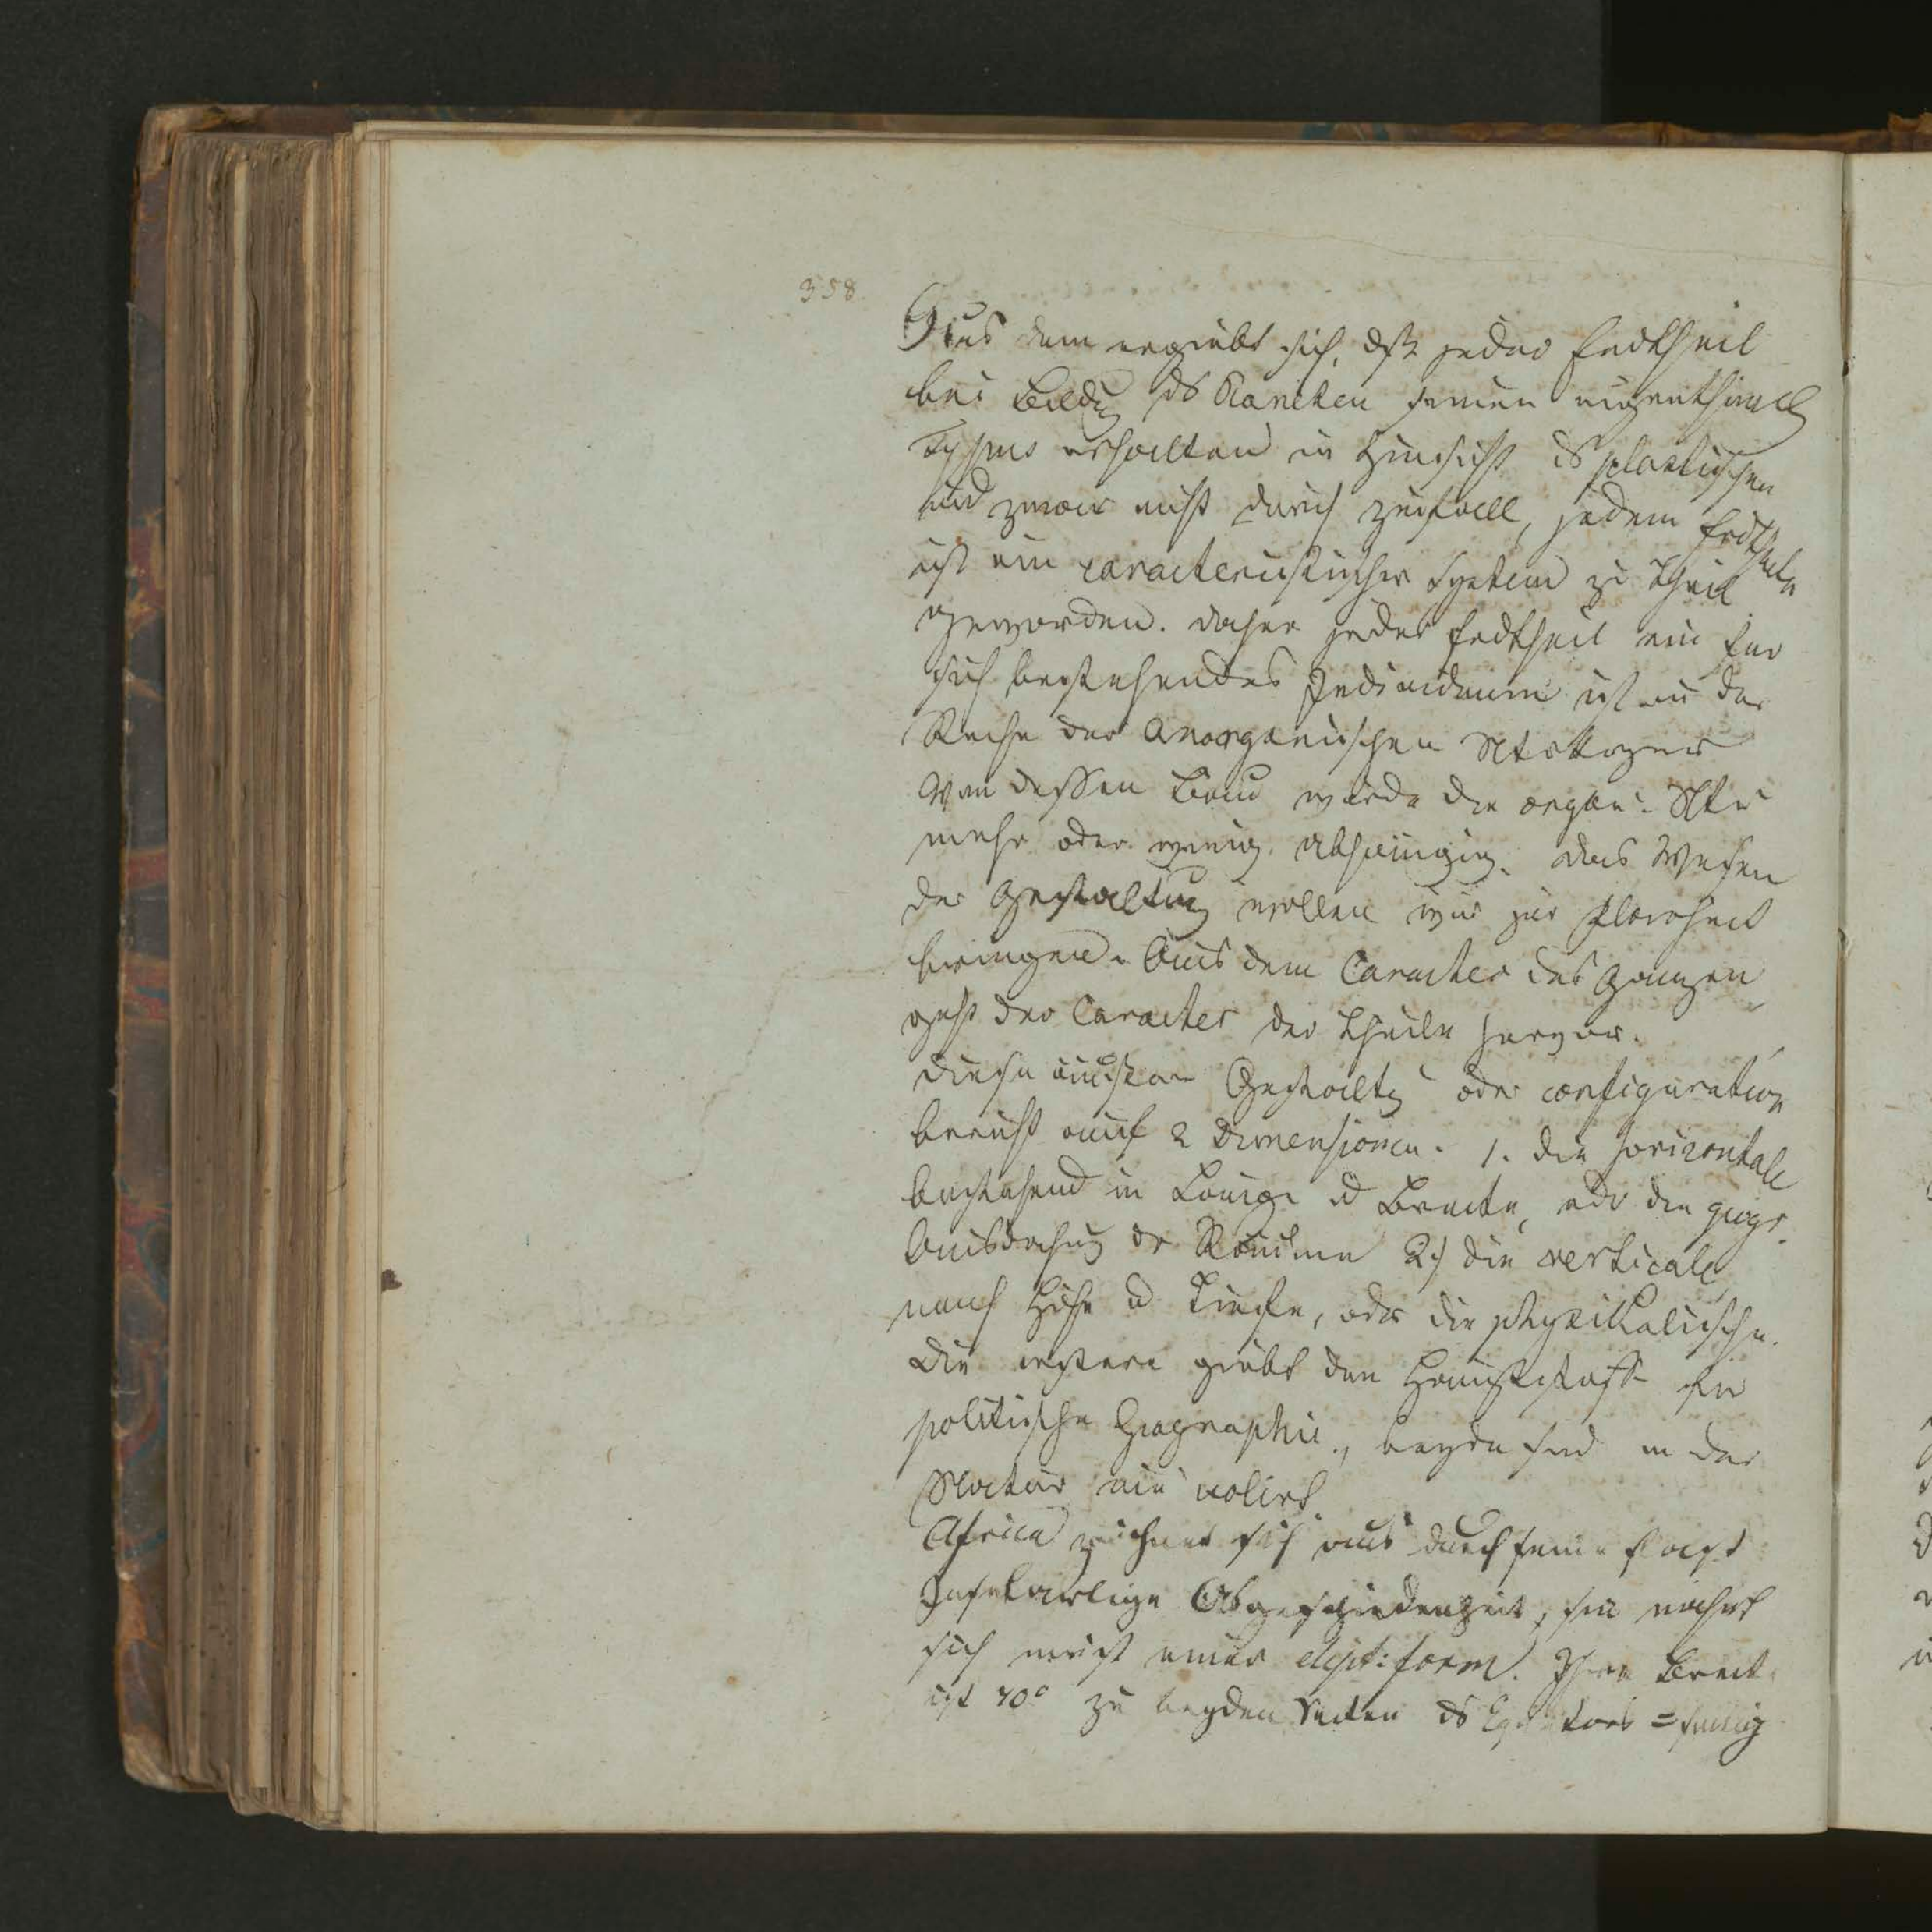 358
Aus dem ergiebt sich, dß jeder Erdtheil
bei Bildung ds Planeten seinen eigenthüml
Typus erhalten in Hinsicht ds plastischen
und zwar nicht durch Zufall, jedem Erdtheile
ist ein caracteristisches System zu Theil
geworden. daher jeder Erdtheil ein für
sich bestehendes Individuum ist in der
Reihe der Anorganischen
Von dessen Bau wurde die organ.
mehr oder wenig. abhängig. das Wesen
der Gestaltung wollen wir zur Klarheit
bringen. Aus dem Caracter des Ganzen
geht der Caracter der Theile hervor.
Diese äußere Gestaltg oder configuration
beruht auf 2 Dimensionen. 1. die horizontale
bestehend in Länge u Breite, oder die geogr.
Ausdehnung dr Räume 2) die verticale
nach Höhe u Tiefe, oder die physikalische.
Die erstere giebt den Hauptstoff für
politische Geographie, beyde sind in der
Natur nie isolirt
Africa zeichnet sich aus durch seine fast
Inselartige Abgeschiedenheit, sie nähert
sich meist einer elipt: form. Ihre Breit
ist 70° zu beyden Seiten ds Equators